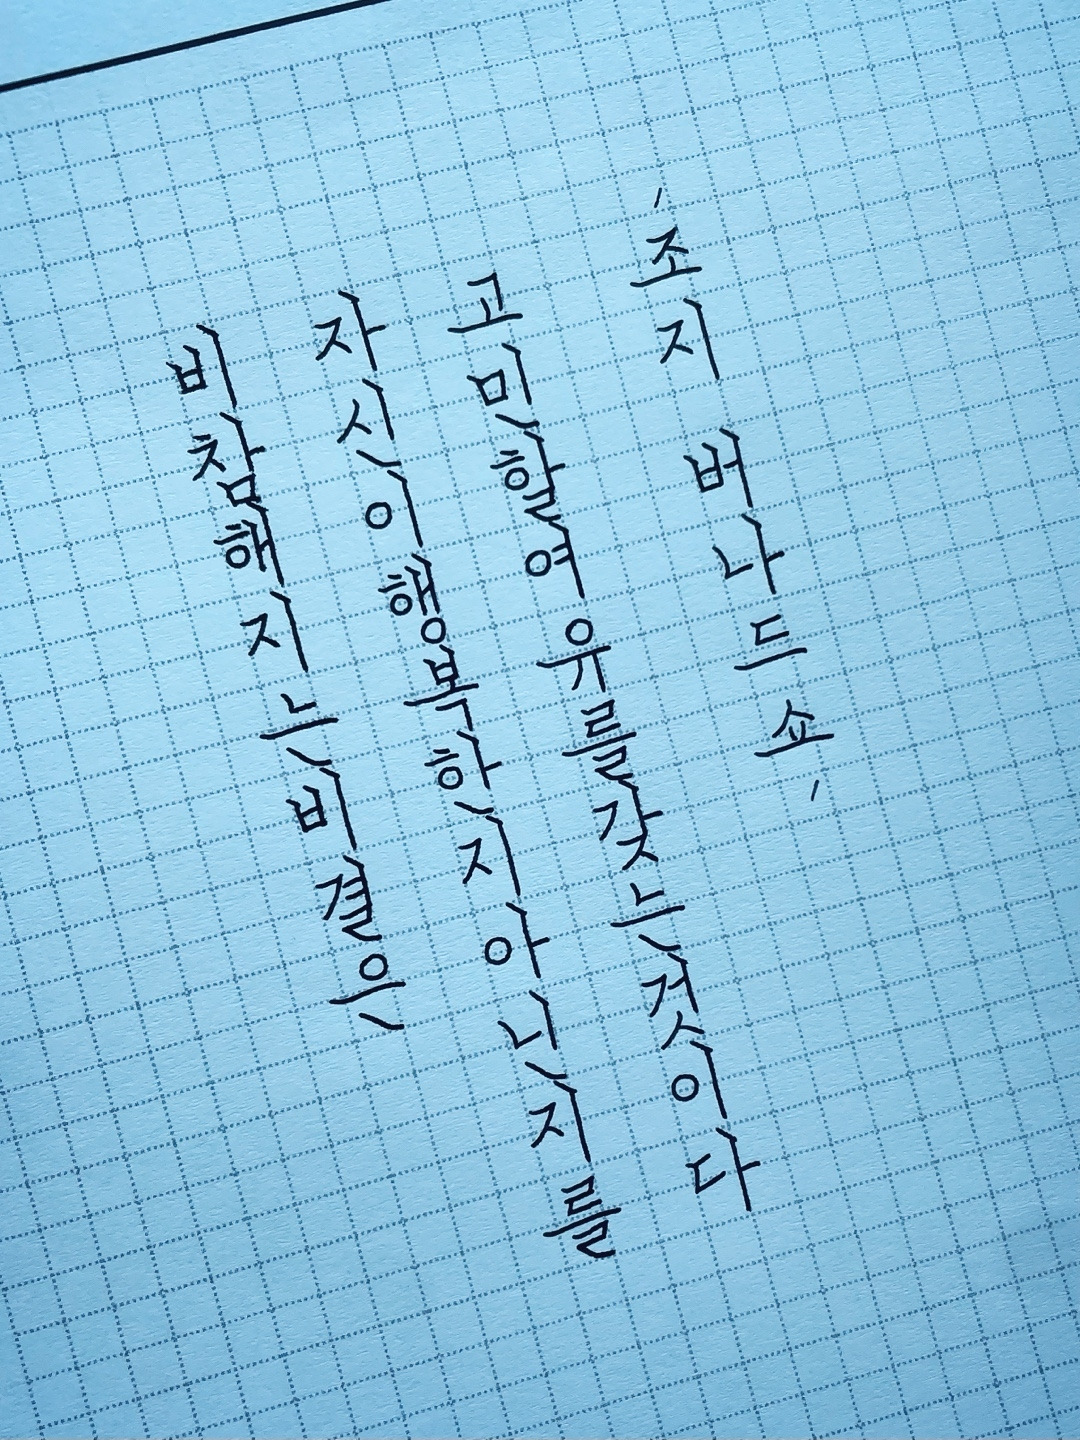 비참해지는비결은
자신이행복한지아닌지를
고민할여유를갖는것이다
'조지 버나드쇼'